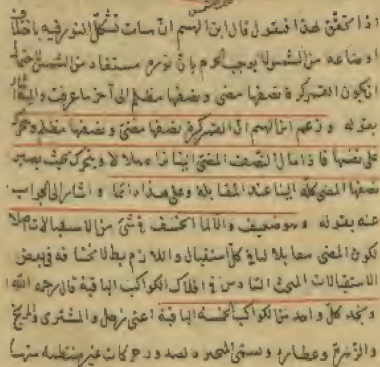 اذا تحقق لهذا فنقول قال ابن الهيثم ان سات تشكل النور فيه باختلا
اوضاعه من الشمس لا يوجب الجزم بان نوره مستفاد من الشمس
ان يكون القمر كرة نصفها مضئ ونصفها مظلم الى آخر ما عرفت
بقوله وزعم ابن الهيثم ان القمر كرة نصفها مضئ ونصفها مظلم
على نفسها فاذا مال النصف المضئ الينا هلالا ويتحرك بحيث يصير
نصفها المضئ كله الينا عند المقابلة وعلى هذا دائما واشار الى الجواب
عنه بقوله وهو ضعيف والا لما انخسف في شئ من الاستقبالات اصلا
لكون المضئ مقابلا لنا في كل استقبال واللازم بطلانه في بعض
الاستقبالات المبحث السادس في افلاك الكواكب الباقية قال رحمه الله
ونجد كل واحد من الكواكب الخمسة الباقية اعنى زحل والمشترى والمريخ
والزهرة وعطارد وتسمى المتحيرة حركات غير منتظمة